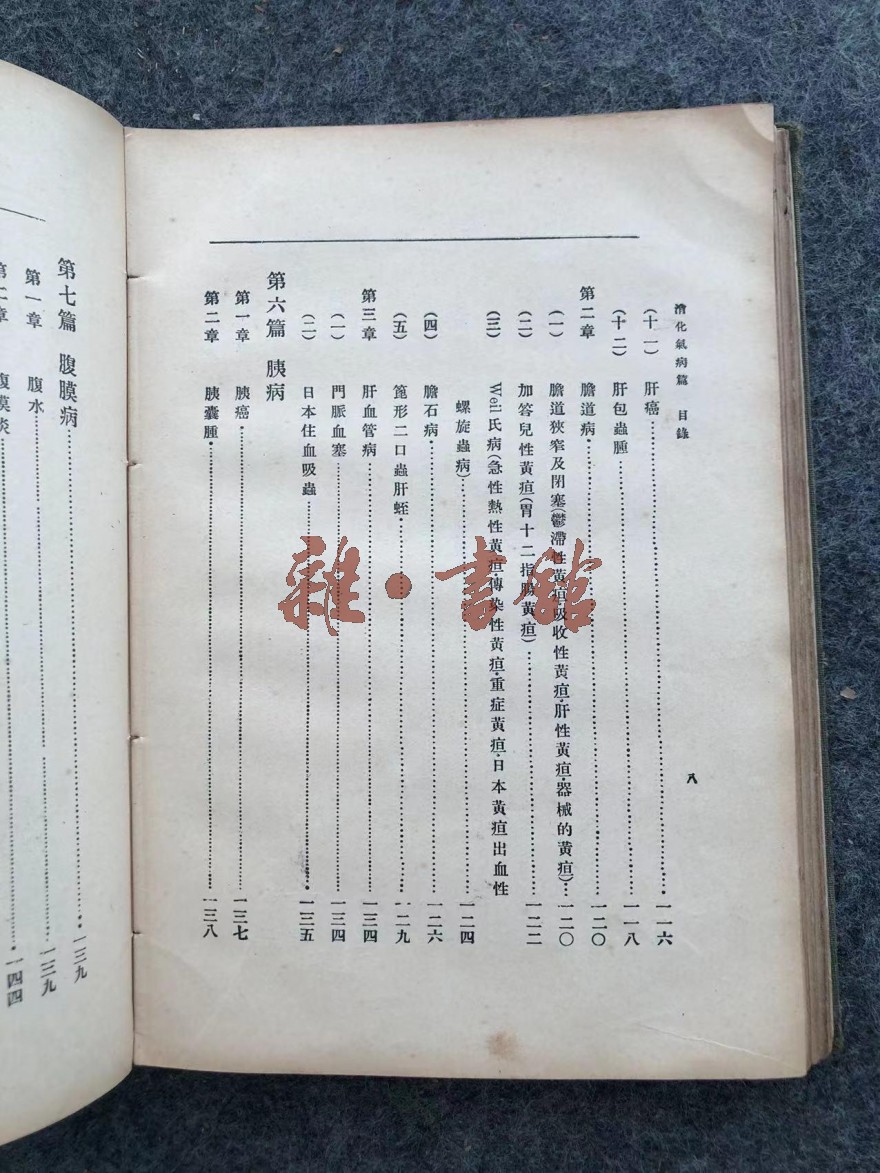 消化氣病篇 目錄
八
(十一) 肝癌 一一六
(十二) 肝包蟲腫 一一八
第二章 膽道病 一二〇
(一) 膽道狹窄及閉塞(鬱滯性黃疸·吸收性黃疸·肝性黃疸·器械的黃疸) 一二〇
(二) 加答兒性黃疸(胃十二指腸黃疸) 一二二
(三) Weil氏病(急性熱性黃疸·傳染性黃疸·重症黃疸·日本黃疸出血性
螺旋蟲病) 一二四
(四) 膽石病 一二六
(五) 箆形二口蟲肝蛭 一二九
第三章 肝血管病 一三四
(一) 門脈血塞 一三四
(二) 日本住血吸蟲 一三五
第六篇 胰病
第一章 胰癌 一三七
第二章 胰囊腫 一三八
第七篇 腹膜病 一三九
第一章 腹水 一三九
第二章 腹膜炎 一四四
雜·書館